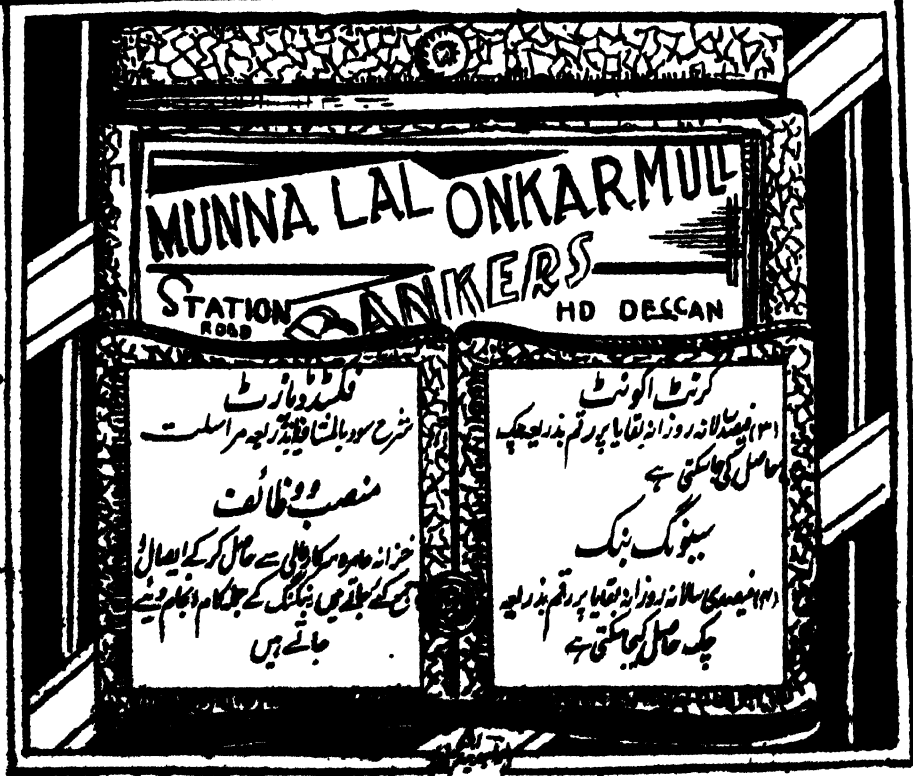 MUNNA LAL ONKARMULL
BANKERS
STATION
ROAD
HD DECCAN
کرنٹ اکونٹ
(۳) فیصد سالانہ روزانہ بقایا پر رقم بذریعہ چک
حاصل کی جاسکتی ہے
سیونگ بنک
(۳) فیصدی سالانہ روزانہ بقایا پر رقم بذریعہ
چک حاصل کیجاسکتی ہے
فکسڈ ڈپازٹ
شرح سود بالمشافہ یا بذریعہ مراسلت
منصب و وظائف
خزانہ عامرہ سرکار عالی سے حاصل کر کے ایصال و
جمع کئے جاتے ہیں بنکنگ کے جملہ کام انجام دیئے
جاتے ہیں